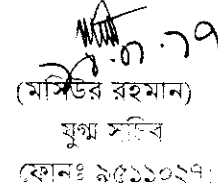 (মসিউর রহমান)
যুগ্ম সচিব
ফোনঃ ৯৫১১০২৭